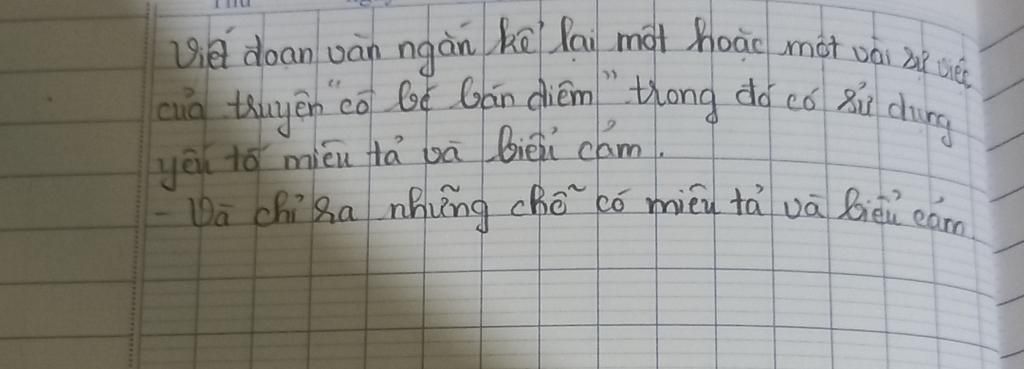 Viết đoạn văn ngắn kể lại một hoặc một vài sự việc
của truyện "cô bé bán diêm" trong đó có sử dụng
yếu tố miêu tả và biểu cảm.
- Và chỉ ra những chỗ có miêu tả và biểu cảm